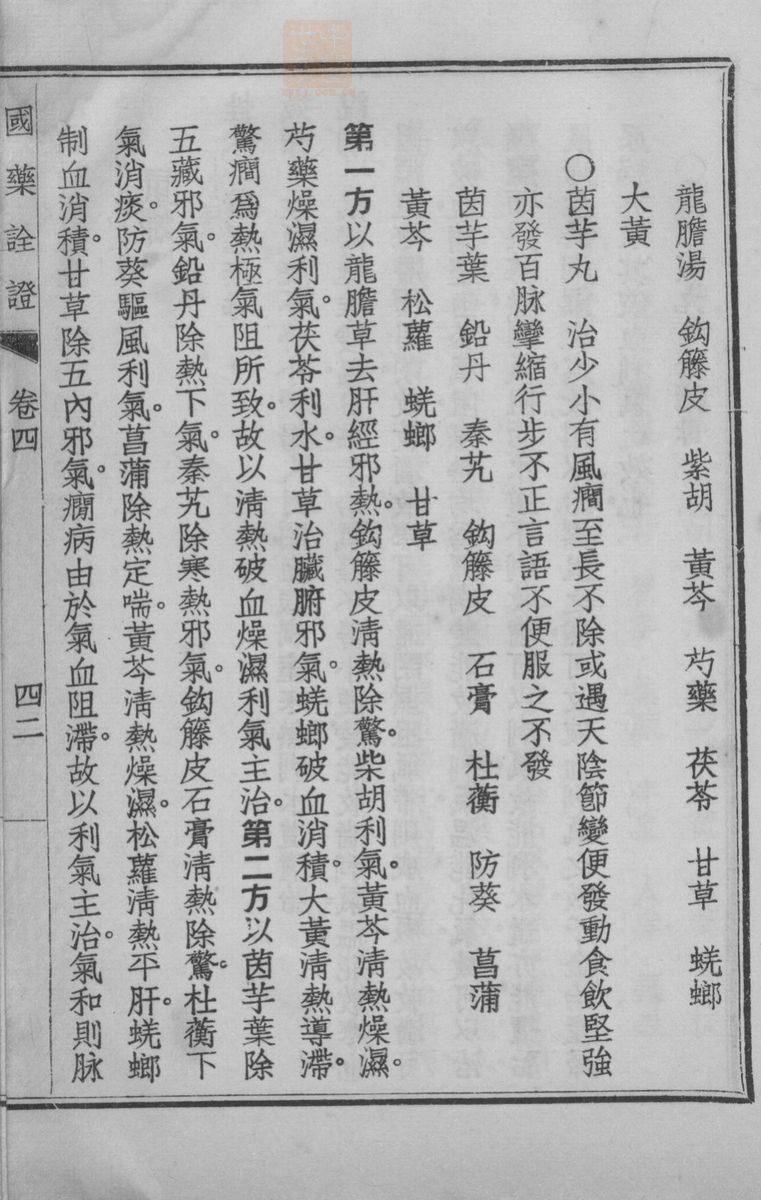 龍膽湯　鈎籐皮　紫胡　黃芩　芍藥　茯苓　甘草　蜣螂
大黃
〇茵芋丸　治少小有風癎至長不除或遇天陰節變便發動食飲堅強
亦發百脉攣縮行步不正言語不便服之不發
茵芋葉　鉛丹　秦艽　鈎籐皮　石膏　杜蘅　防葵　菖蒲
黃芩　松蘿　蜣螂　甘草
第一方以龍膽草去肝經邪熱。鈎籐皮淸熱除驚。柴胡利氣。黃芩淸熱燥濕。
芍藥燥濕利氣。茯苓利水。甘草治臟腑邪氣。蜣螂破血消積。大黃淸熱導滯。
驚癎爲熱極氣阻所致。故以淸熱破血燥濕利氣主治。第二方以茵芋葉除
五藏邪氣。鉛丹除熱下氣。秦艽除寒熱邪氣。鈎籐皮石膏淸熱除驚。杜蘅下
氣消痰。防葵驅風利氣。菖蒲除熱定喘。黃芩淸熱燥濕。松蘿淸熱平肝。蜣螂
制血消積。甘草除五內邪氣。癎病由於氣血阻滯。故以利氣主治。氣和則脉
國藥詮證　卷四　四二